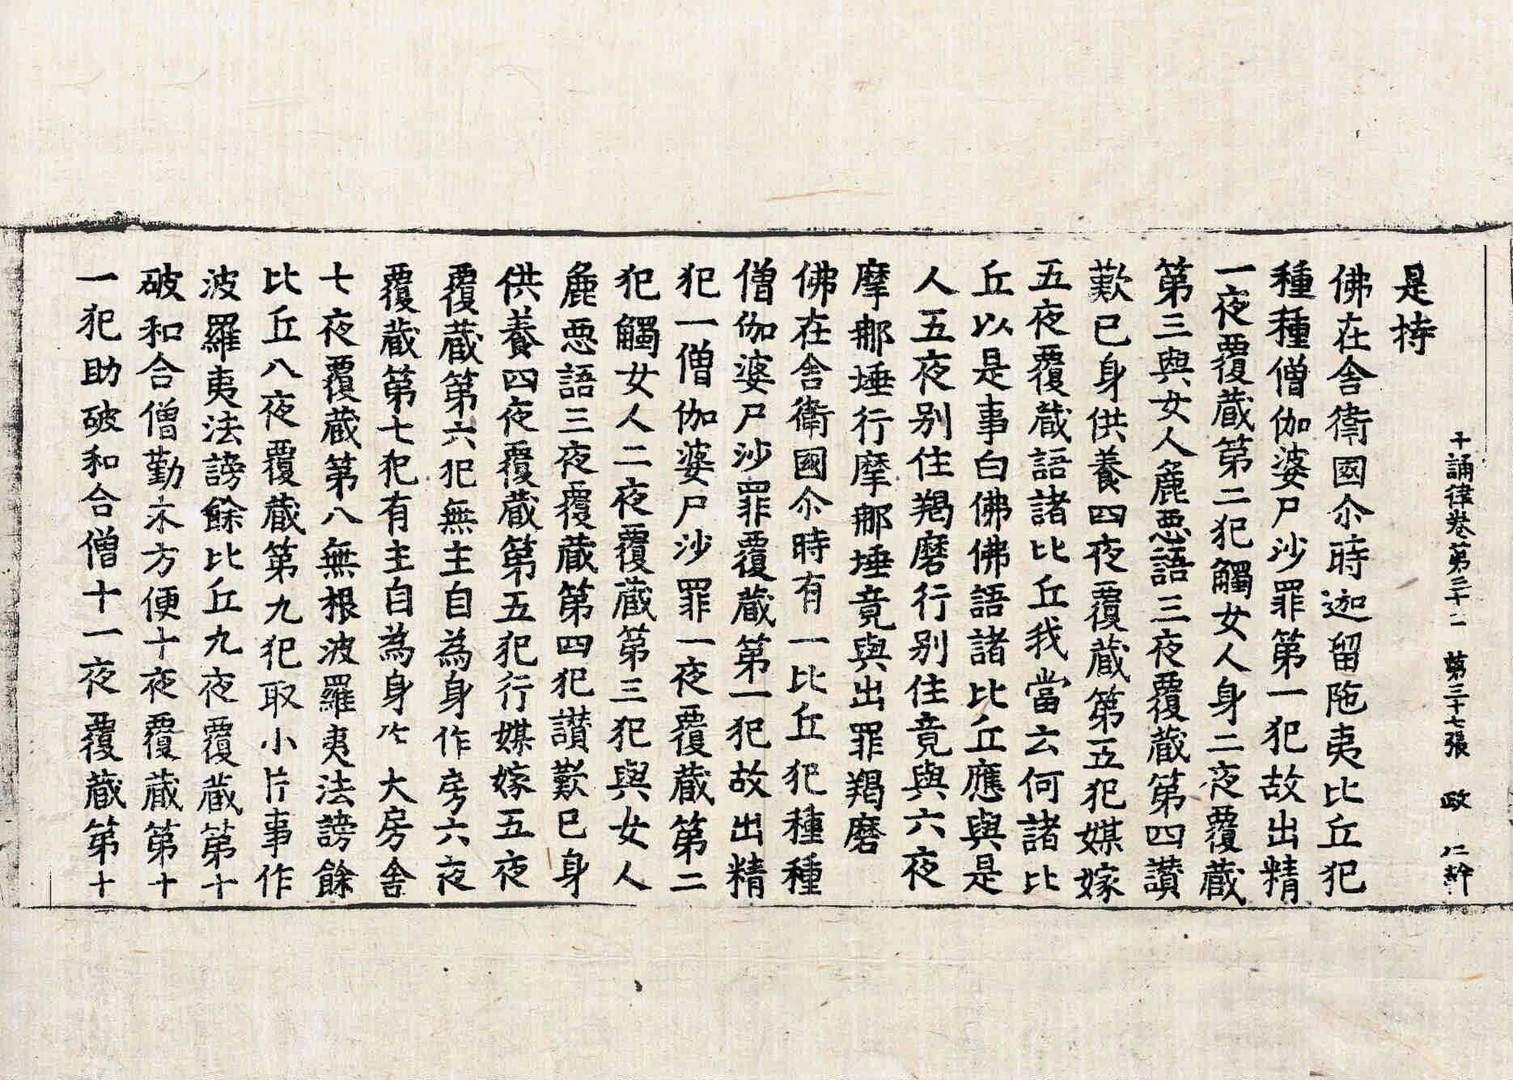 十誦律卷第三十二 第三十七張 政
是持
佛在舍衛國尒時迦留陁夷比丘犯
種種僧伽婆尸沙罪第一犯故出精
一夜覆蔵第二犯觸女人身二夜覆蔵
第三與女人麁惡語三夜覆蔵第四讃
歎已身供養四夜覆蔵第五犯媒嫁
五夜覆蔵語諸比丘我當云何諸比
丘以是事白佛佛語諸比丘應與是
人五夜别住羯磨行别住竟與六夜
摩那埵行摩那埵竟與出罪羯磨
佛在舍衛國尒時有一比丘犯種種
僧伽婆尸沙罪覆蔵第一犯故出精
犯一僧伽婆尸沙罪一夜覆蔵第二
犯觸女人二夜覆蔵第三犯與女人
麁惡語三夜覆蔵第四犯讃歎已身
供養四夜覆蔵第五犯行媒嫁五夜
覆蔵第六犯無主自為身作房六夜
覆蔵第七犯有主自為身大房舍
七夜覆蔵第八無根波羅夷法謗餘
比丘八夜覆蔵第九犯取小片事作
波羅夷法謗餘比丘九夜覆蔵第十
破和合僧勤求方便十夜覆蔵第十
一犯助破和合僧十一夜覆蔵第十